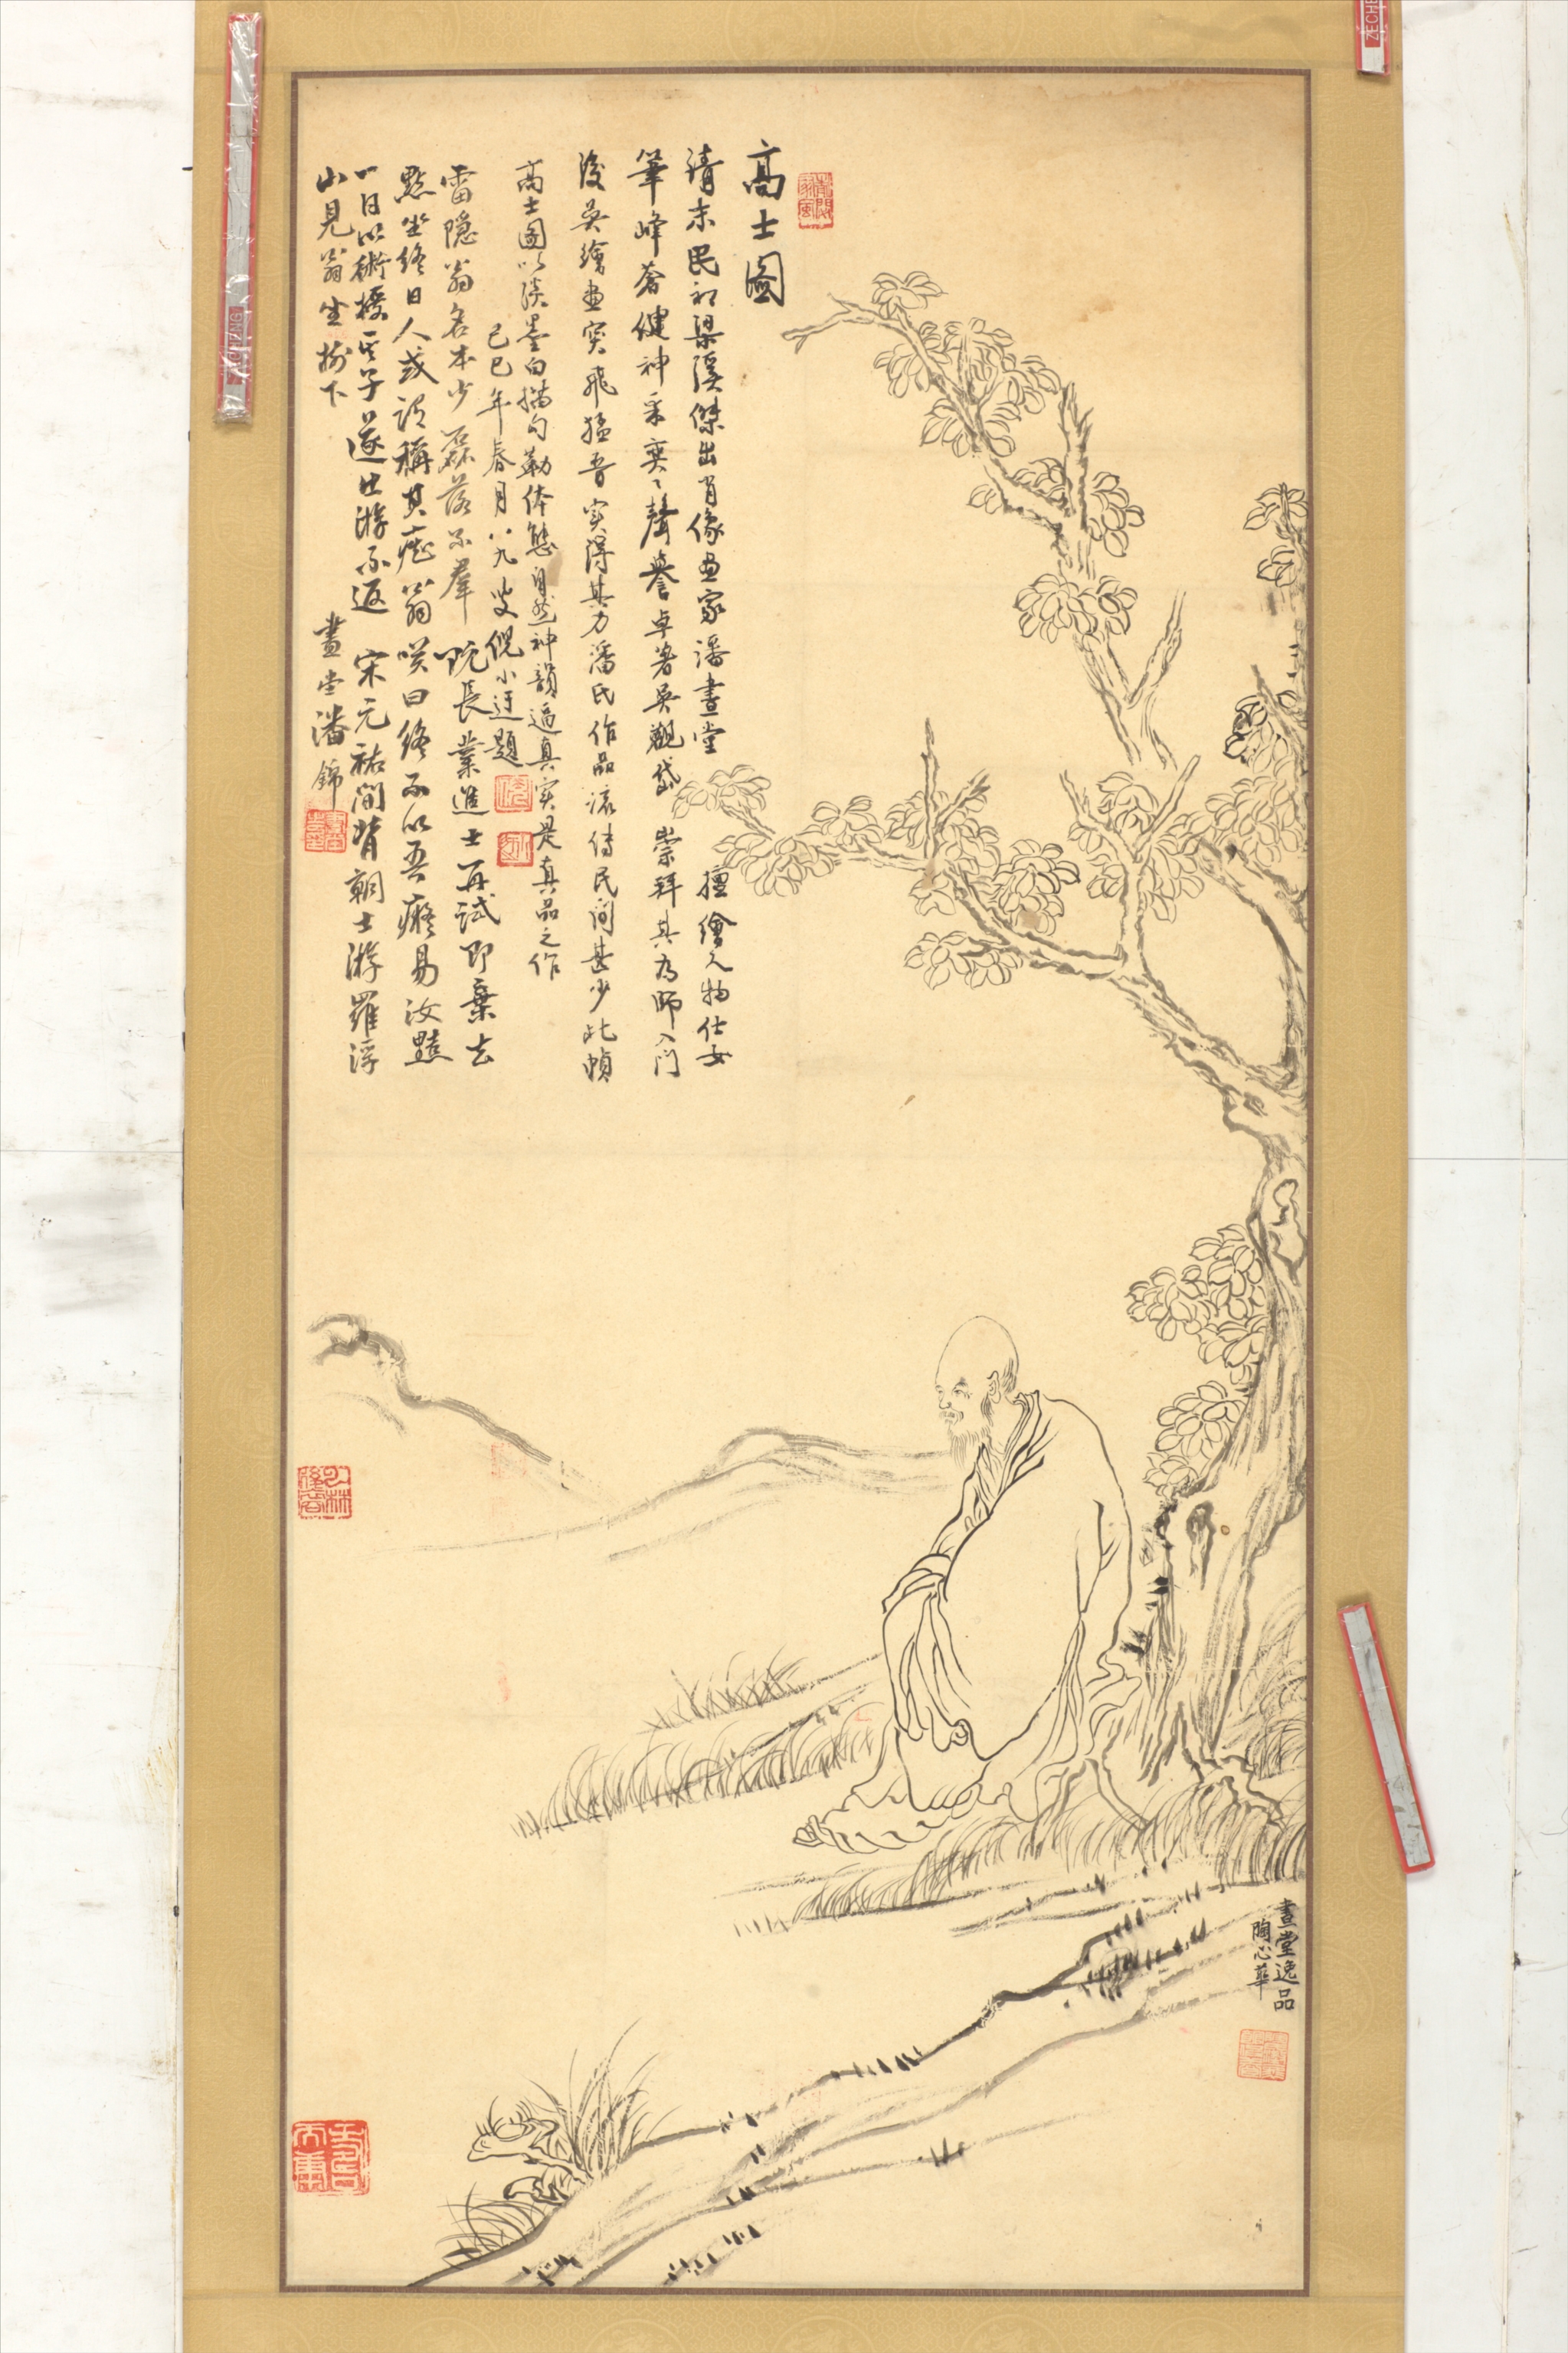 高士圖
清末民初梁溪傑出肖像畫家潘晝堂 擅繪人物仕女
筆峰蒼健神采奕々聲譽卓著吳觀岱 崇拜其为師入门
後吳繪畫突飛猛晋实得其力潘氏作品流傳民间甚少此幀
高士圖以淡墨白描勾勒体態自然神韻逼真实是真品之作
己巳年春月八九叟倪小迂題
雷隐翁名本少磊落不羣 既長業進士再試即棄去
點坐終日人或詆稱其痴翁咲曰終不以吾癡易汝黠
一日以術授其子遂出游不返 宋元祐间有朝士游羅浮
山見翁坐樹下 晝堂潘錦
晝堂逸品
陶心華